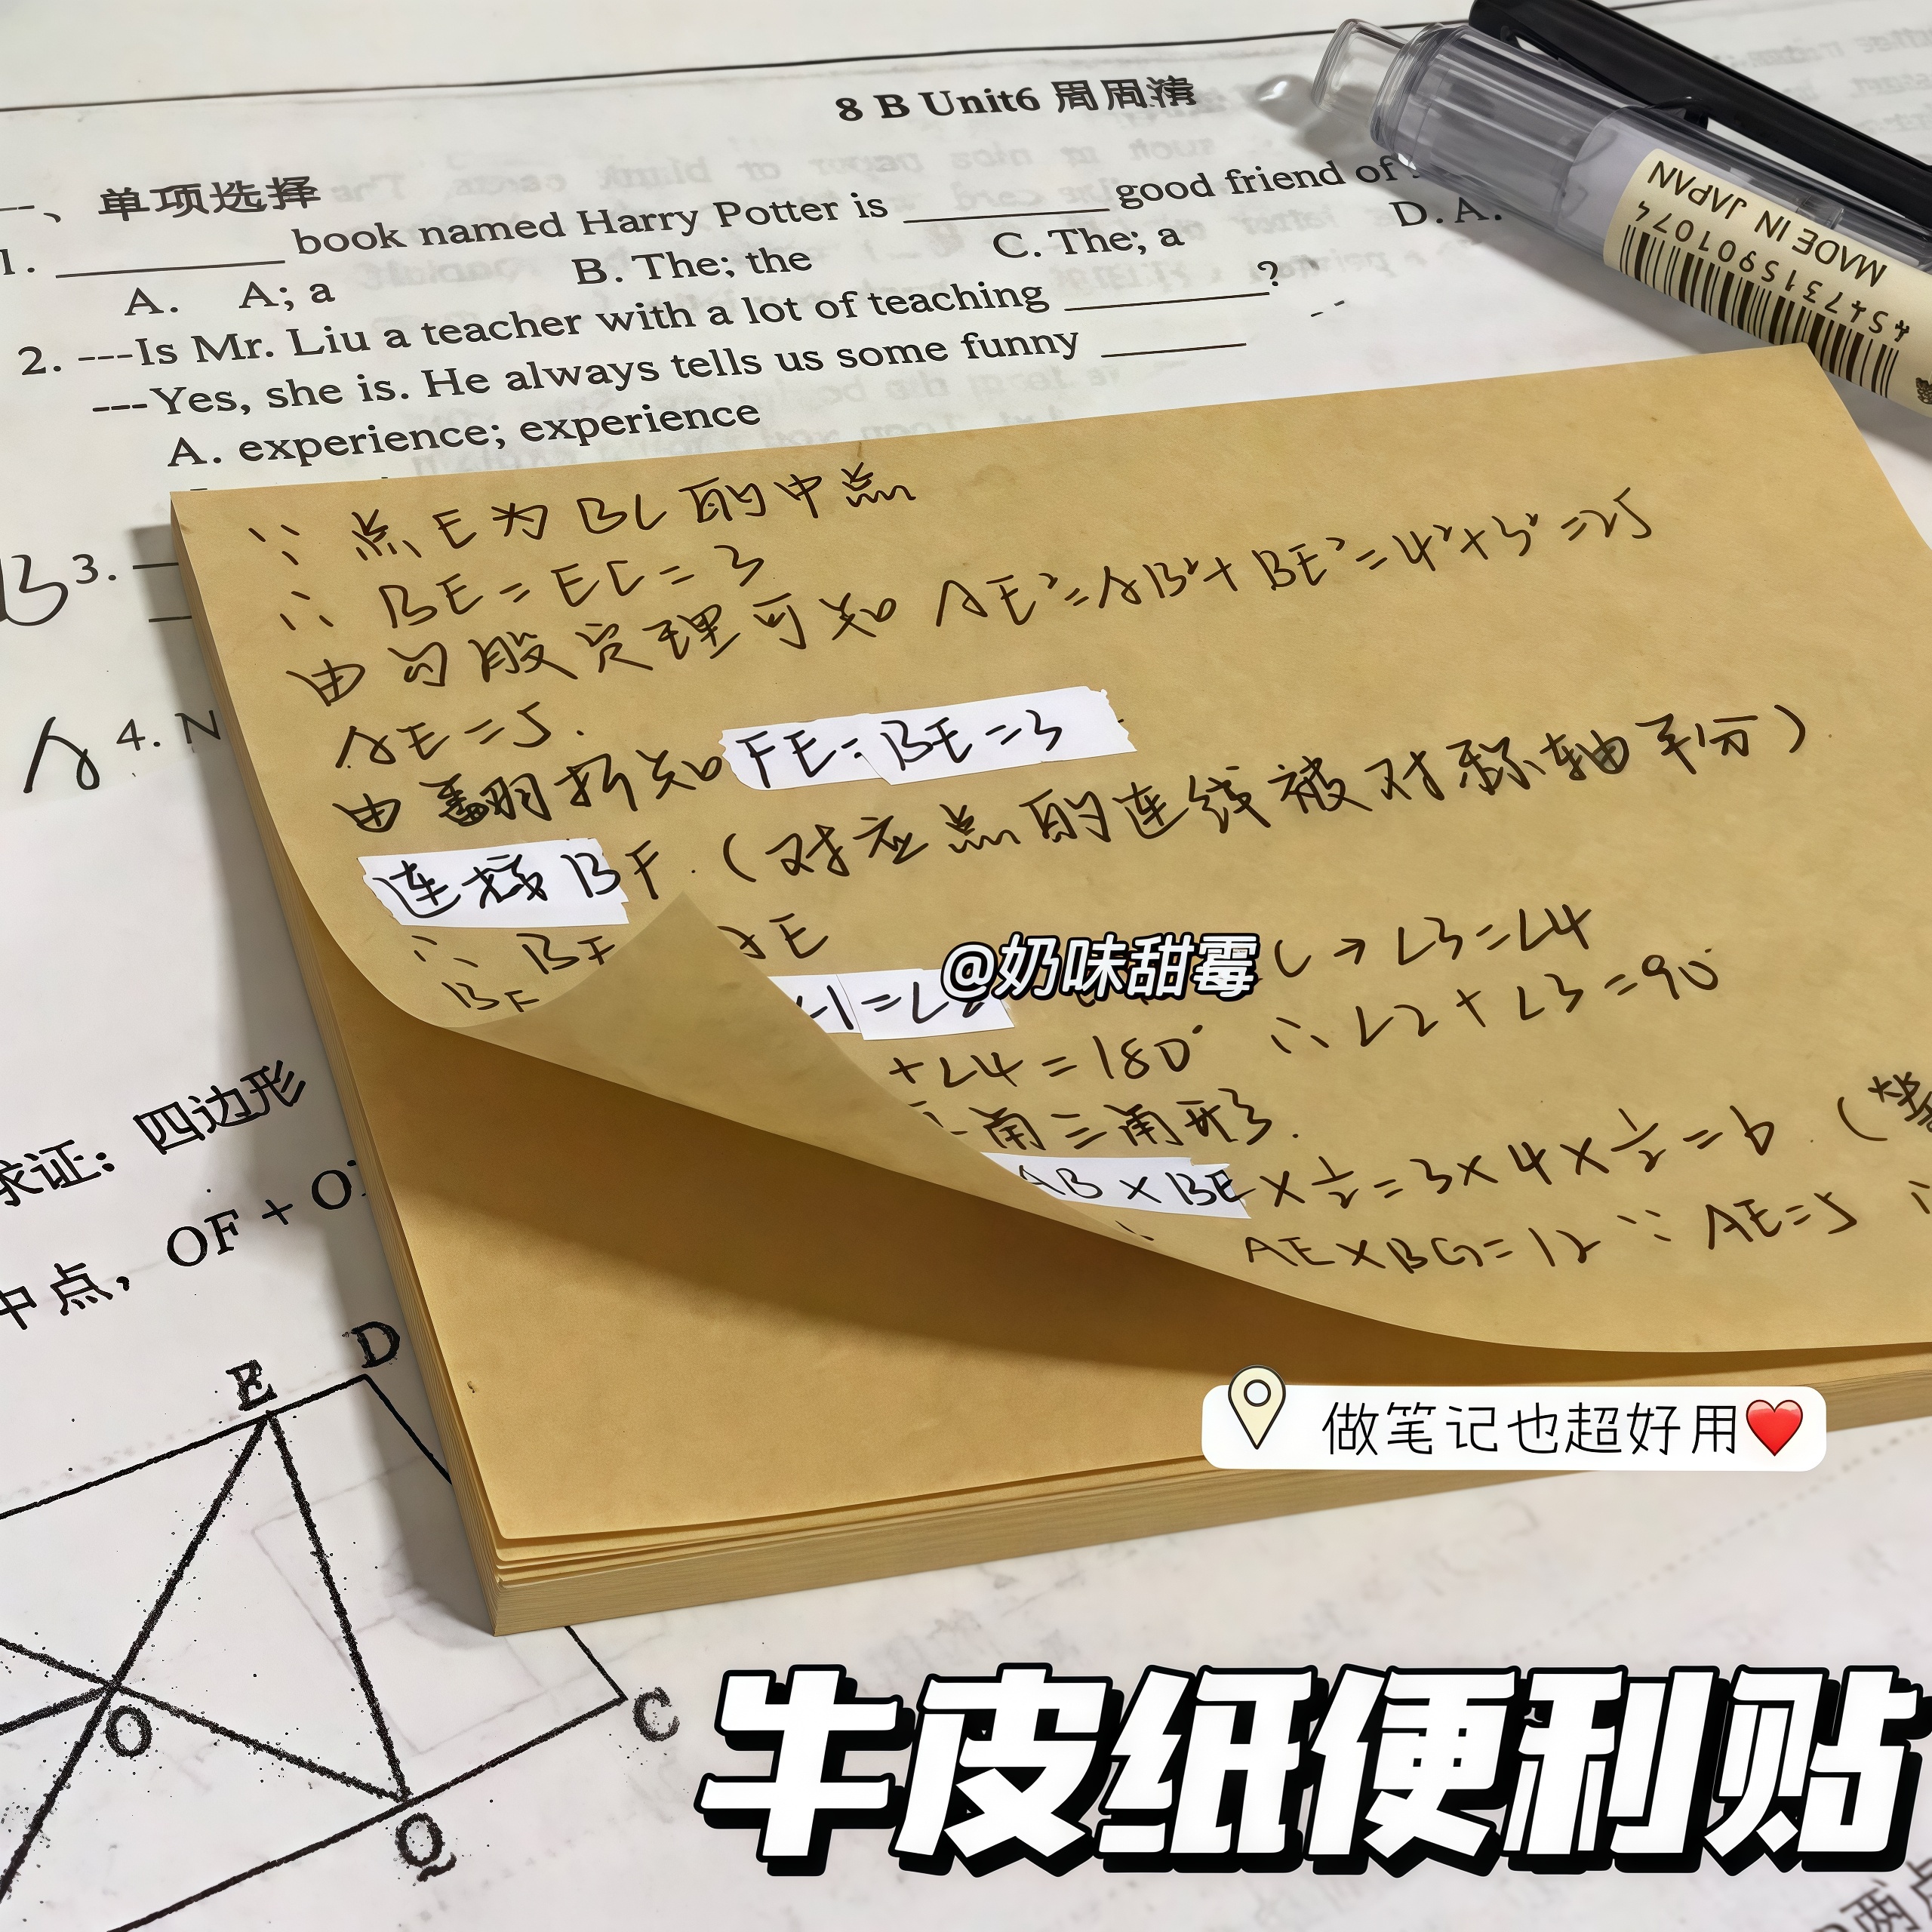 8 B Unit6 周周清
一、单项选择
1. ________ book named Harry Potter is ________ good friend of
A. A; a B. The; the C. The; a D. A.
2. ---Is Mr. Liu a teacher with a lot of teaching ________?
---Yes, she is. He always tells us some funny ______
A. experience; experience
B 3.
A 4. N
MADE IN JAPAN
∵ 点E为BC的中点
∴ BE=EC=3
由勾股定理可知 AE²=AB²+BE²=4²+3²=25
AE=5.
由翻折知 FE=BE=3
连接BF.(对应点的连线被对称轴平分)
∴ BF AE
BF
∠1=∠2 C → ∠3=∠4
+∠4=180° ∴ ∠2+∠3=90°
角三角形.
AB×BE×1/2=3×4×1/2=6.(等
AE×BG=12 ∵ AE=5 ∴
@奶味甜霉
求证：四边形
中点，OF+O
E
D
O
C
Q
做笔记也超好用❤️
牛皮纸便利贴
两点